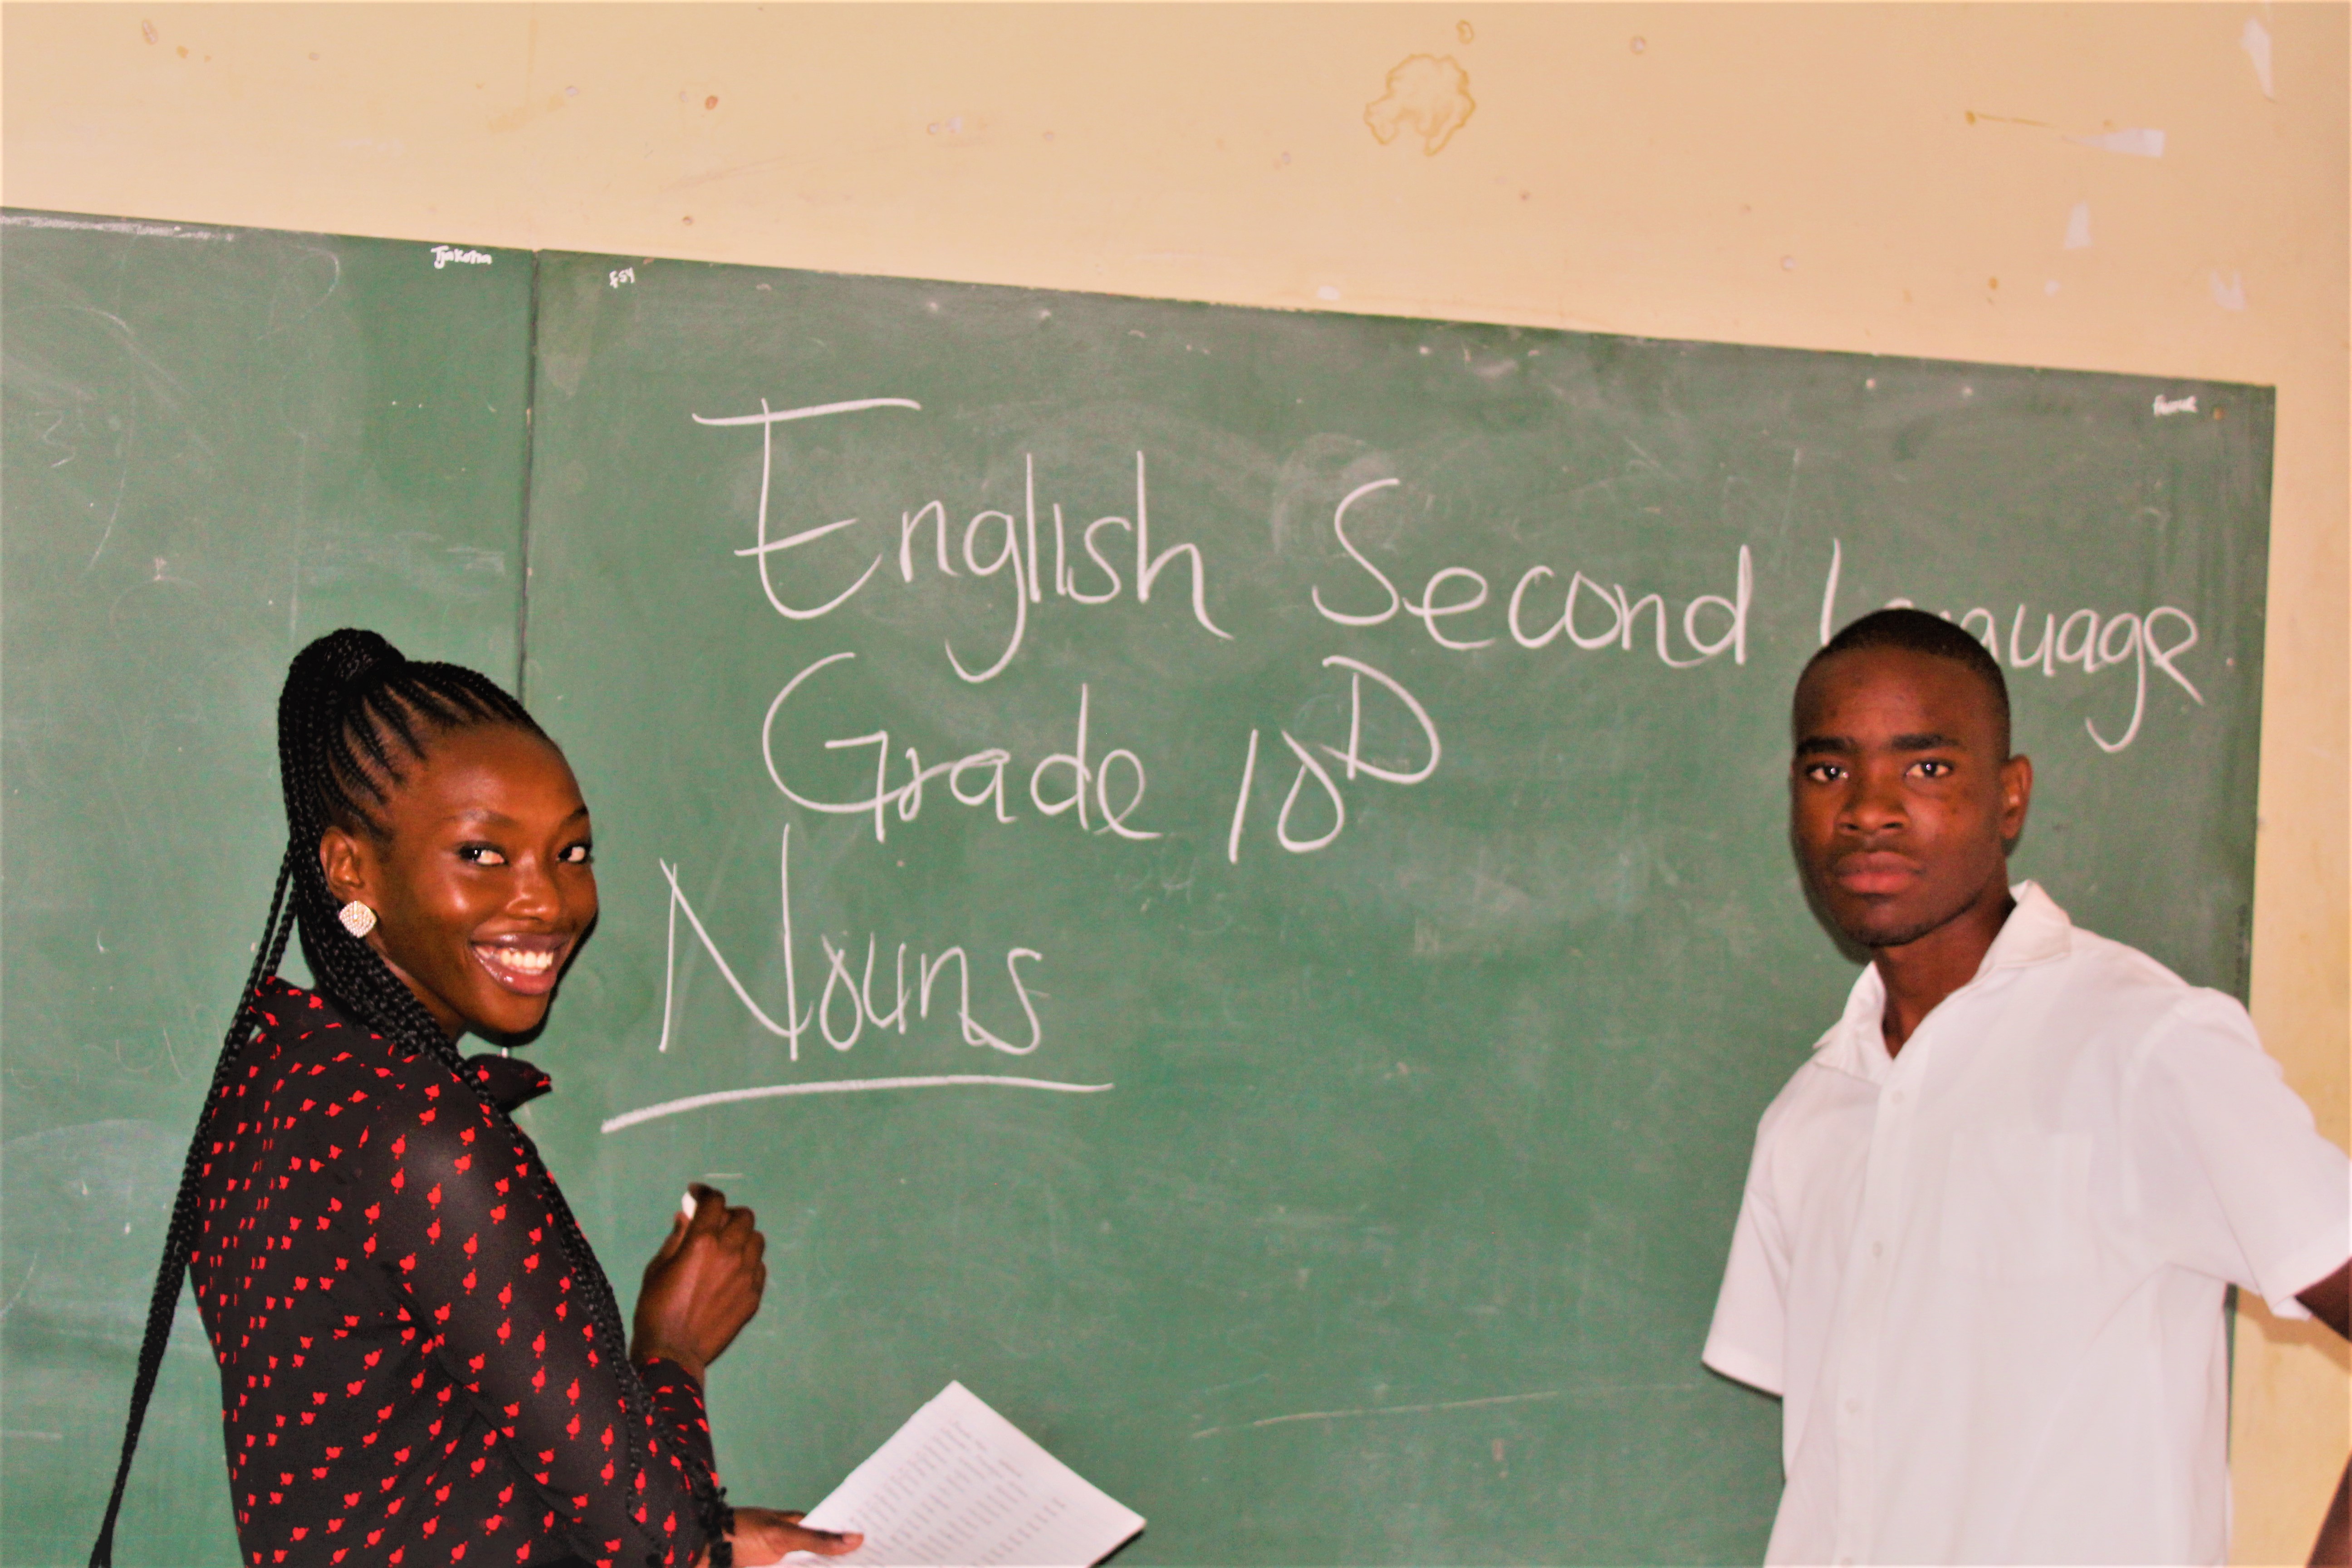 Tjakoha
English Second Language
Grade 10D
Nouns